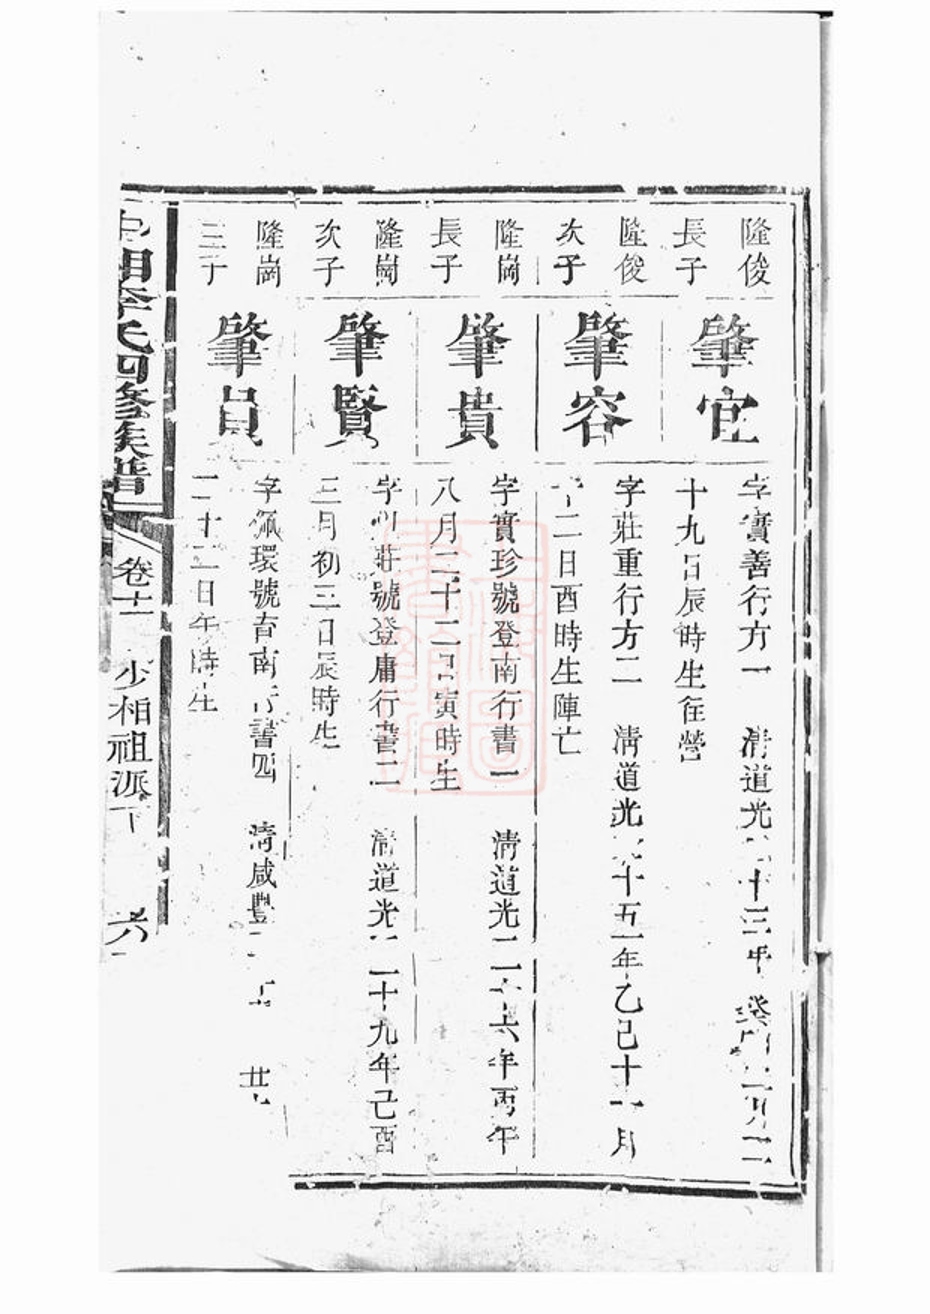 隆俊
長子
肇官
字寶善行方一 清道光十三年癸二月二
十九日辰時生在營
隆俊
次子
肇容
字莊重行方二 清道光十五年乙巳十一月
十二日酉時生陣亡
隆崗
長子
肇貴
字寶珍號登南行書一 清道光二十六年丙午
八月二十二日寅時生
隆崗
次子
肇賢
字莊號登庸行書二 清道光二十九年己酉
三月初三日辰時生
隆崗
三子
肇員
字佩環號育南行書四 清咸豐
二十二日午時生
湘李氏四修族譜
卷十一
少相祖派下
六
上海圖書館藏